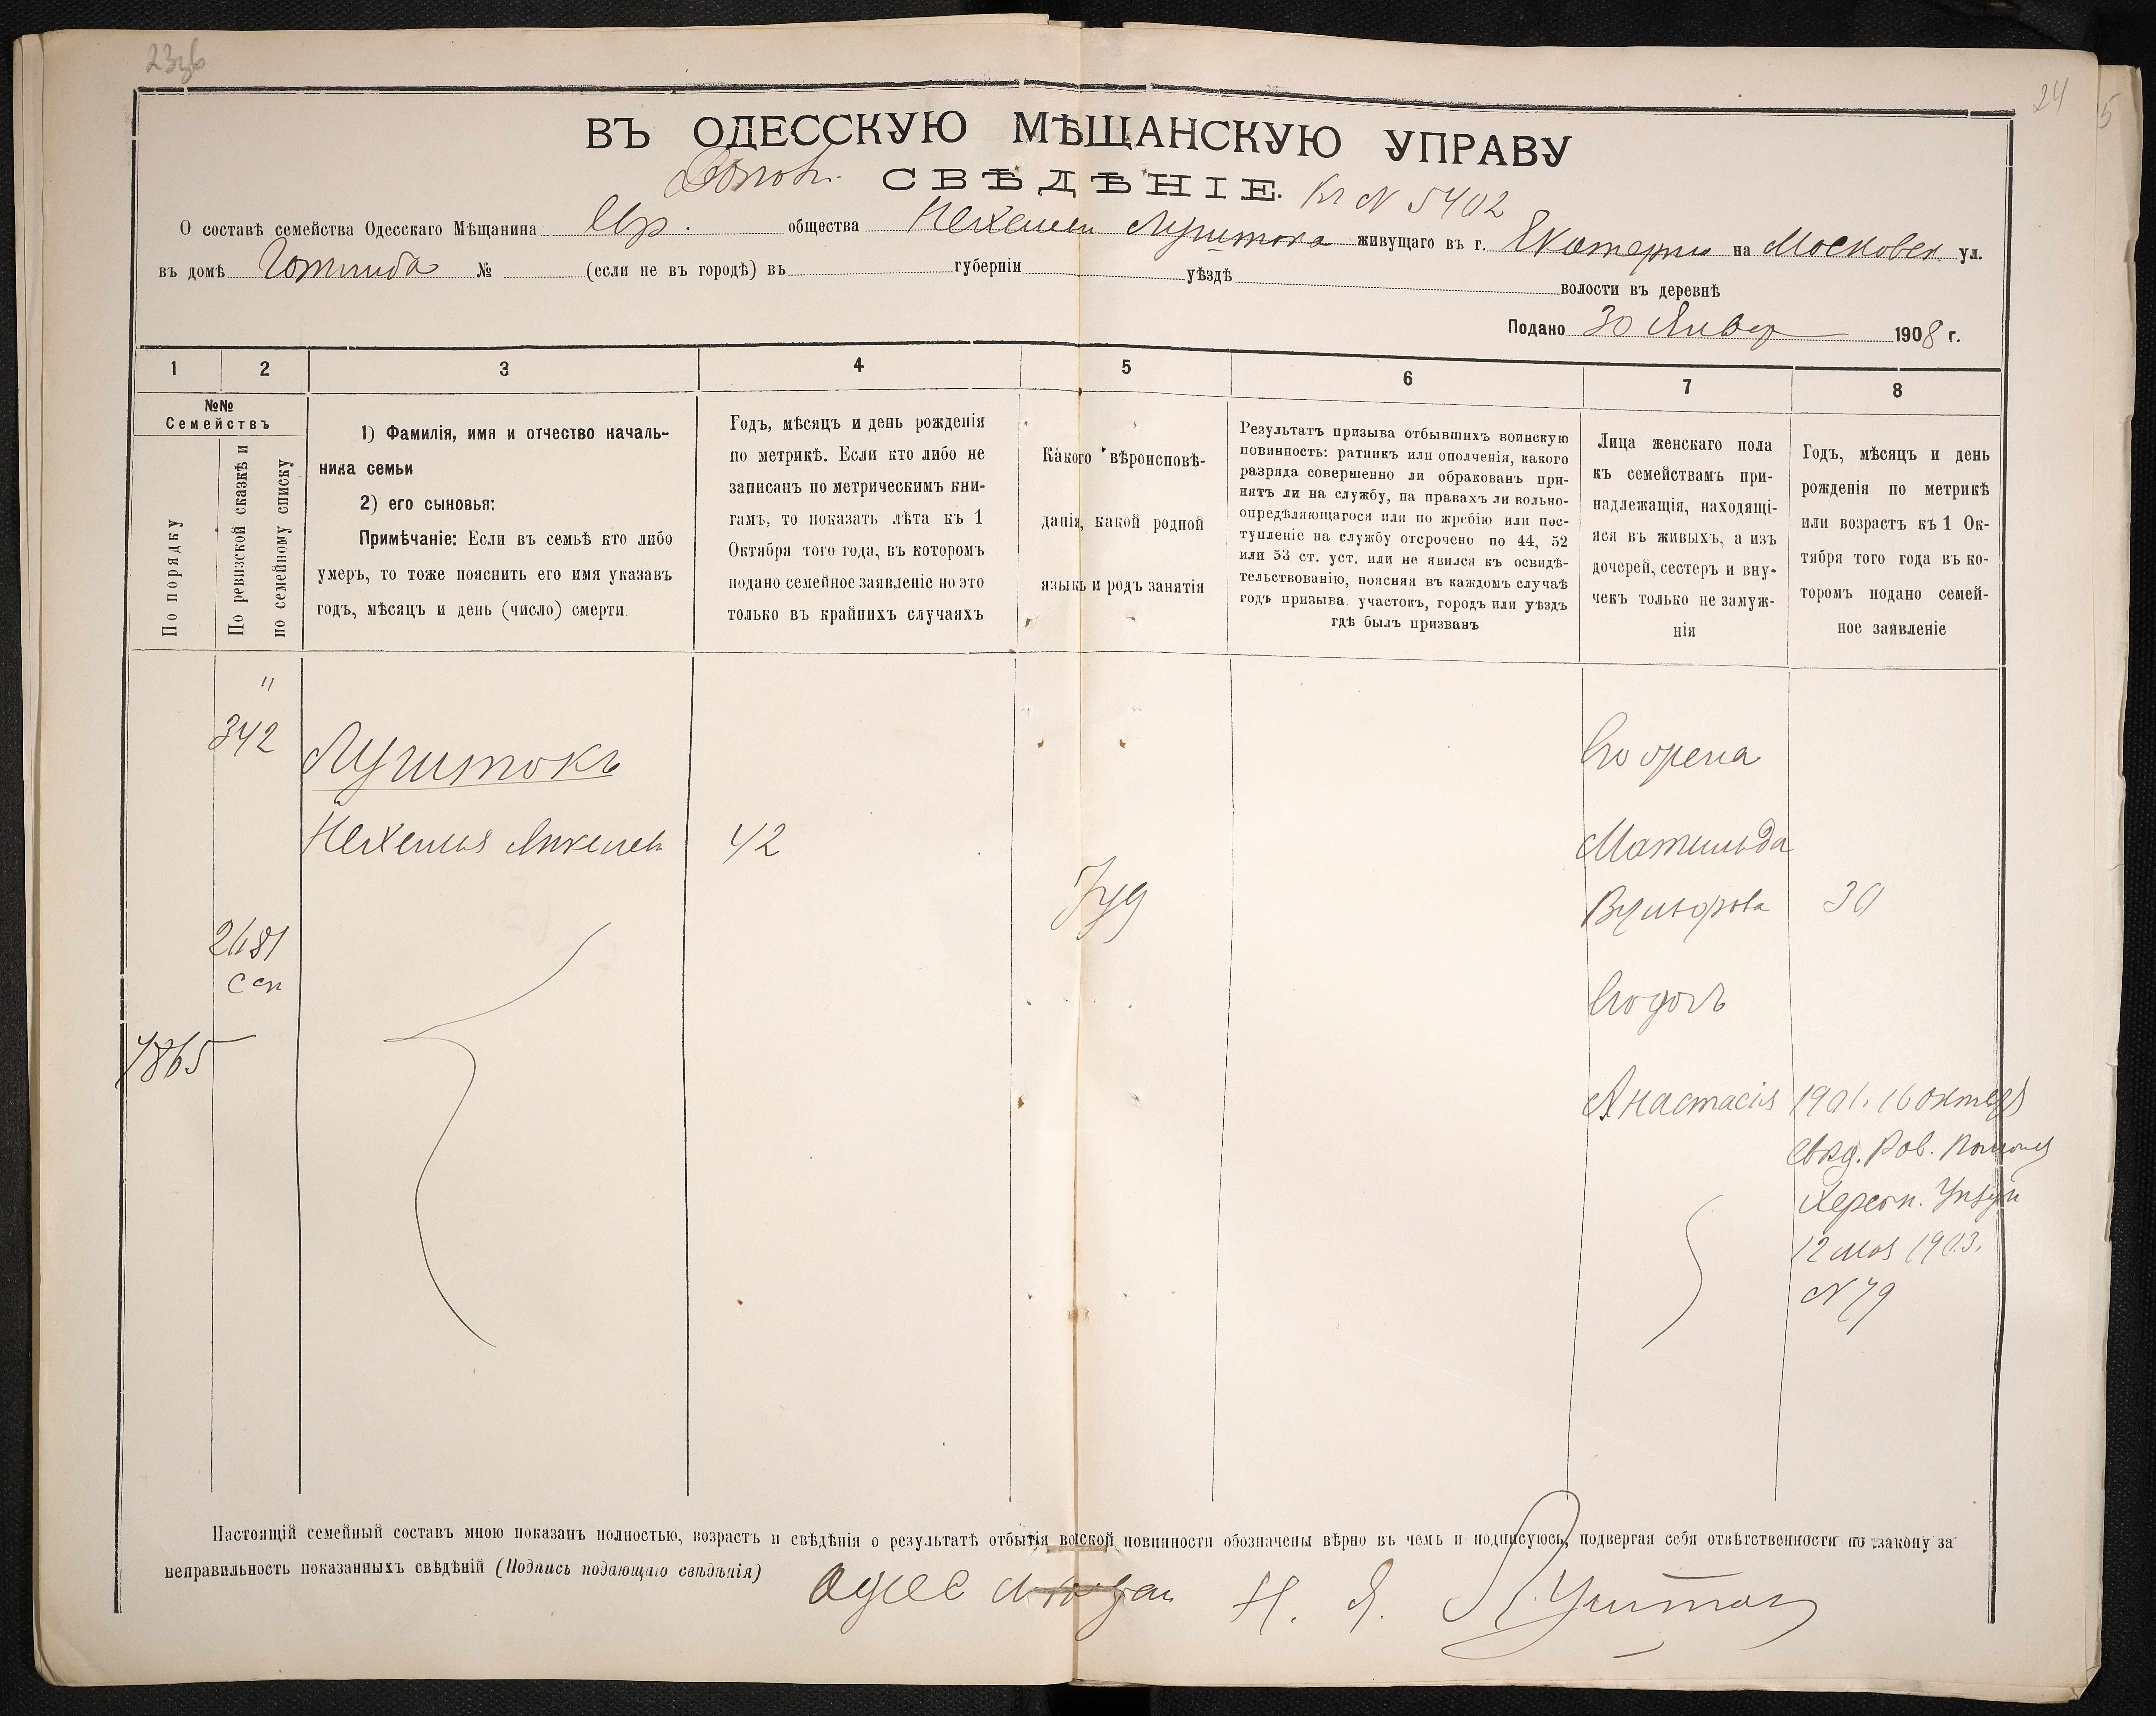 24
ВЪ ОДЕССКУЮ МѢЩАНСКУЮ УПРАВУ
СВѢДѢНІЕ. Кг N 5402
О составѣ семейства Одесскаго Мѣщанина Евр. общества Нехемьи Лушtока живущаго въ г. Екатерин на Московск. ул.
въ домѣ Готлиба № (если не въ городѣ) въ губерніи уѣздѣ волости въ деревнѣ
Подано 30 Январ 1908 г.
1 2 3 4 5 6 7 8
№№
Семействъ
По порядку
По ревизской сказкѣ и
по семейному списку
1) Фамилія, имя и отчество началь-
ника семьи
2) его сыновья:
Примѣчаніе: Если въ семьѣ кто либо
умеръ, то тоже пояснить его имя указавъ
годъ, мѣсяцъ и день (число) смерти.
Годъ, мѣсяцъ и день рожденія
по метрикѣ. Если кто либо не
записанъ по метрическимъ кни-
гамъ, то показать лѣта къ 1
Октября того года, въ которомъ
подано семейное заявленіе но это
только въ крайнихъ случаяхъ
Какого вѣроисповѣ-
данія, какой родной
языкъ и родъ занятія
Результатъ призыва отбывшихъ воинскую
повинность: ратникъ или ополченія, какого
разряда совершенно ли обракованъ при-
нятъ ли на службу, на правахъ ли вольно-
опредѣляющагося или по жребію или пос-
тупленіе на службу отсрочено по 44, 52
или 53 ст. уст. или не явился къ освидѣ-
тельствованію, поясняя въ каждомъ случаѣ
годъ призыва участокъ, городъ или уѣздъ
гдѣ былъ призванъ
Лица женскаго пола
къ семействамъ при-
надлежащія, находящі-
яся въ живыхъ, а изъ
дочерей, сестеръ и вну-
чекъ только не замуж-
нія
Годъ, мѣсяцъ и день
рожденія по метрикѣ
или возрастъ къ 1 Ок-
тября того года въ ко-
торомъ подано семей-
ное заявленіе
"
342
Луштокъ
Его жена
Нехемья Янкелев 42
Матильда
Іуд
Вульфова 30
2681
С сп
Его дочь
7865
Анастасія 1901. 16 октяб
Свид. Рав.
Херсон.
12 мая 1903.
N 79
Настоящій семейный составъ мною показанъ полностью, возрастъ и свѣдѣнія о результатѣ отбытія воиской повинности обозначены вѣрно въ чемъ и подписуюсь, подвергая себя отвѣтственности по закону за
неправильность показанныхъ свѣдѣній (Подпись подающаго свѣдѣнія)
Одес Н. Я. Лушток